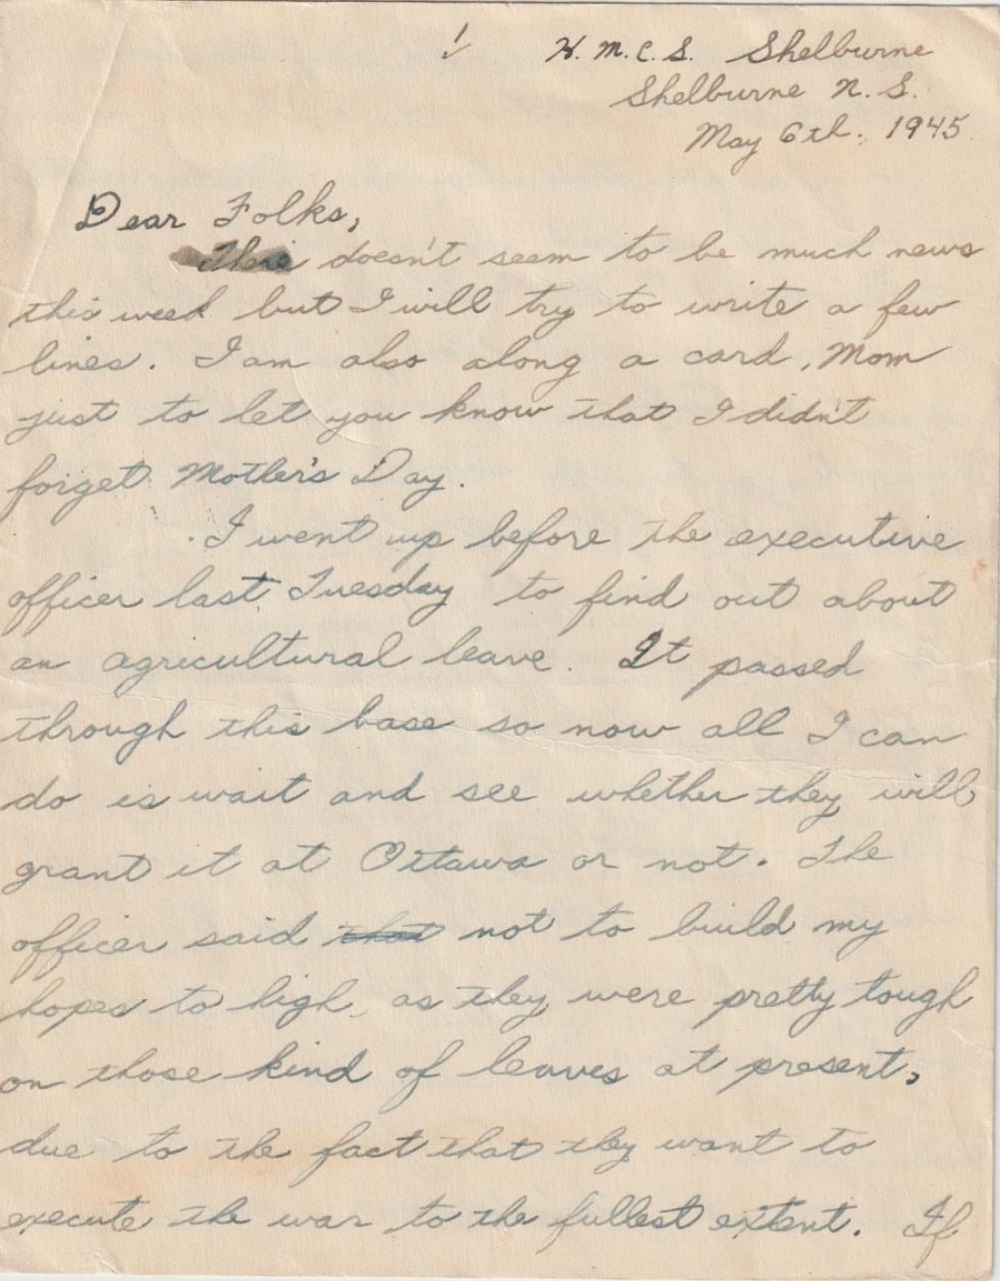 H.M.C.S. Shelburne
Shelburne N.S.
May 6th., 1945
Dear Folks,
There doesn't seem to be much news
this week but I will try to write a few
lines. I am also along a card, Mom
just to let you know that I didn't
forget Mother's Day.
I went up before the executive
officer last Tuesday to find out about
an agricultural leave. It passed
through this base so now all I can
do is wait and see whether they will
grant it at Ottawa or not. The
officer said that not to build my
hopes to high, as they were pretty tough
on those kind of leaves at present,
due to the fact that they want to
execute the war to the fullest extent. If